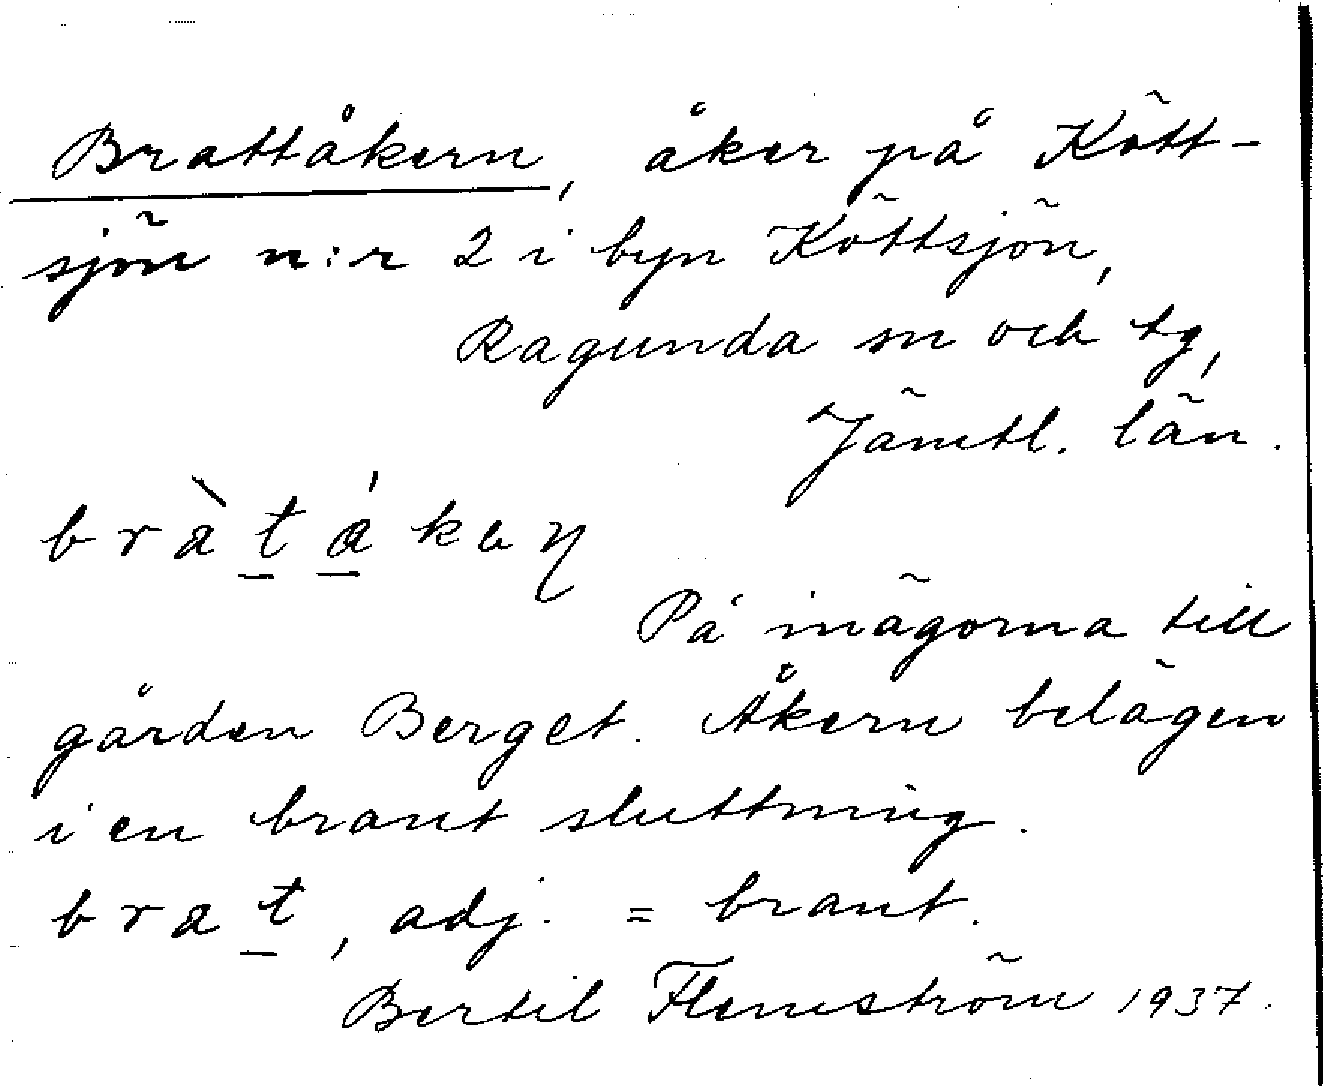 Brattåkern, åker på Kött-
sjön n:r 2 i byn Köttsjön,
Ragunda sn och tg,
Jämtl. län.
bràt̲á̲kaŋ
På inägorna till
gården Berget. Åkern belägen
i en brant sluttning.
brat̲, adj. = brant.
Bertil Flemström 1937.